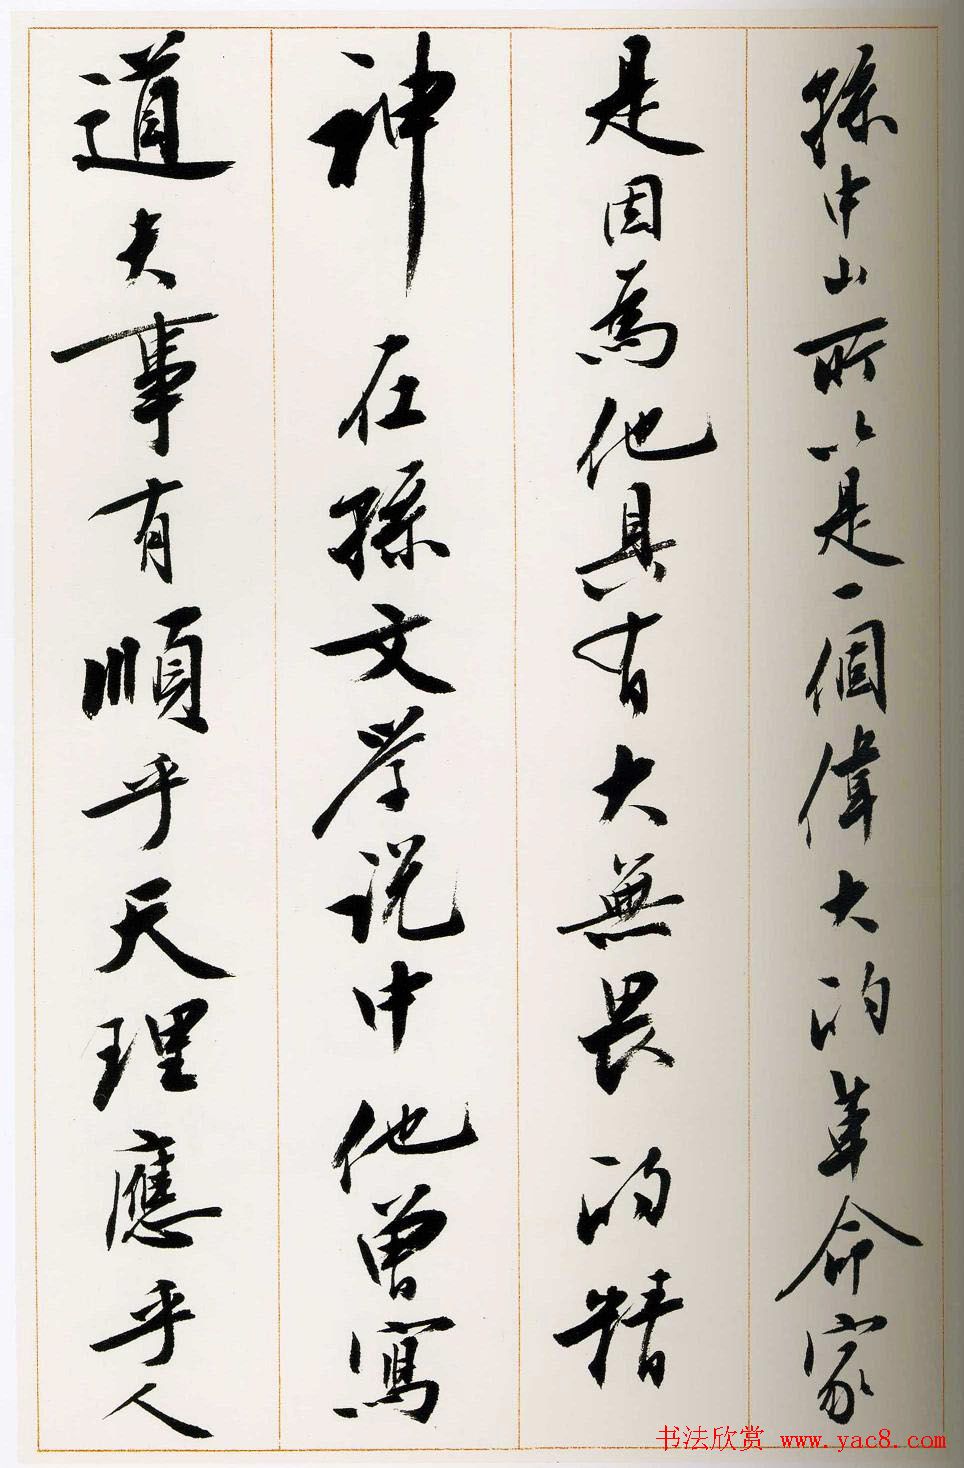 孫中山所以是一個偉大的革命家
是因爲他具有大無畏的精
神在孫文学说中他曾寫
道夫事有順乎天理應乎人
书法欣赏 www.yac8.com